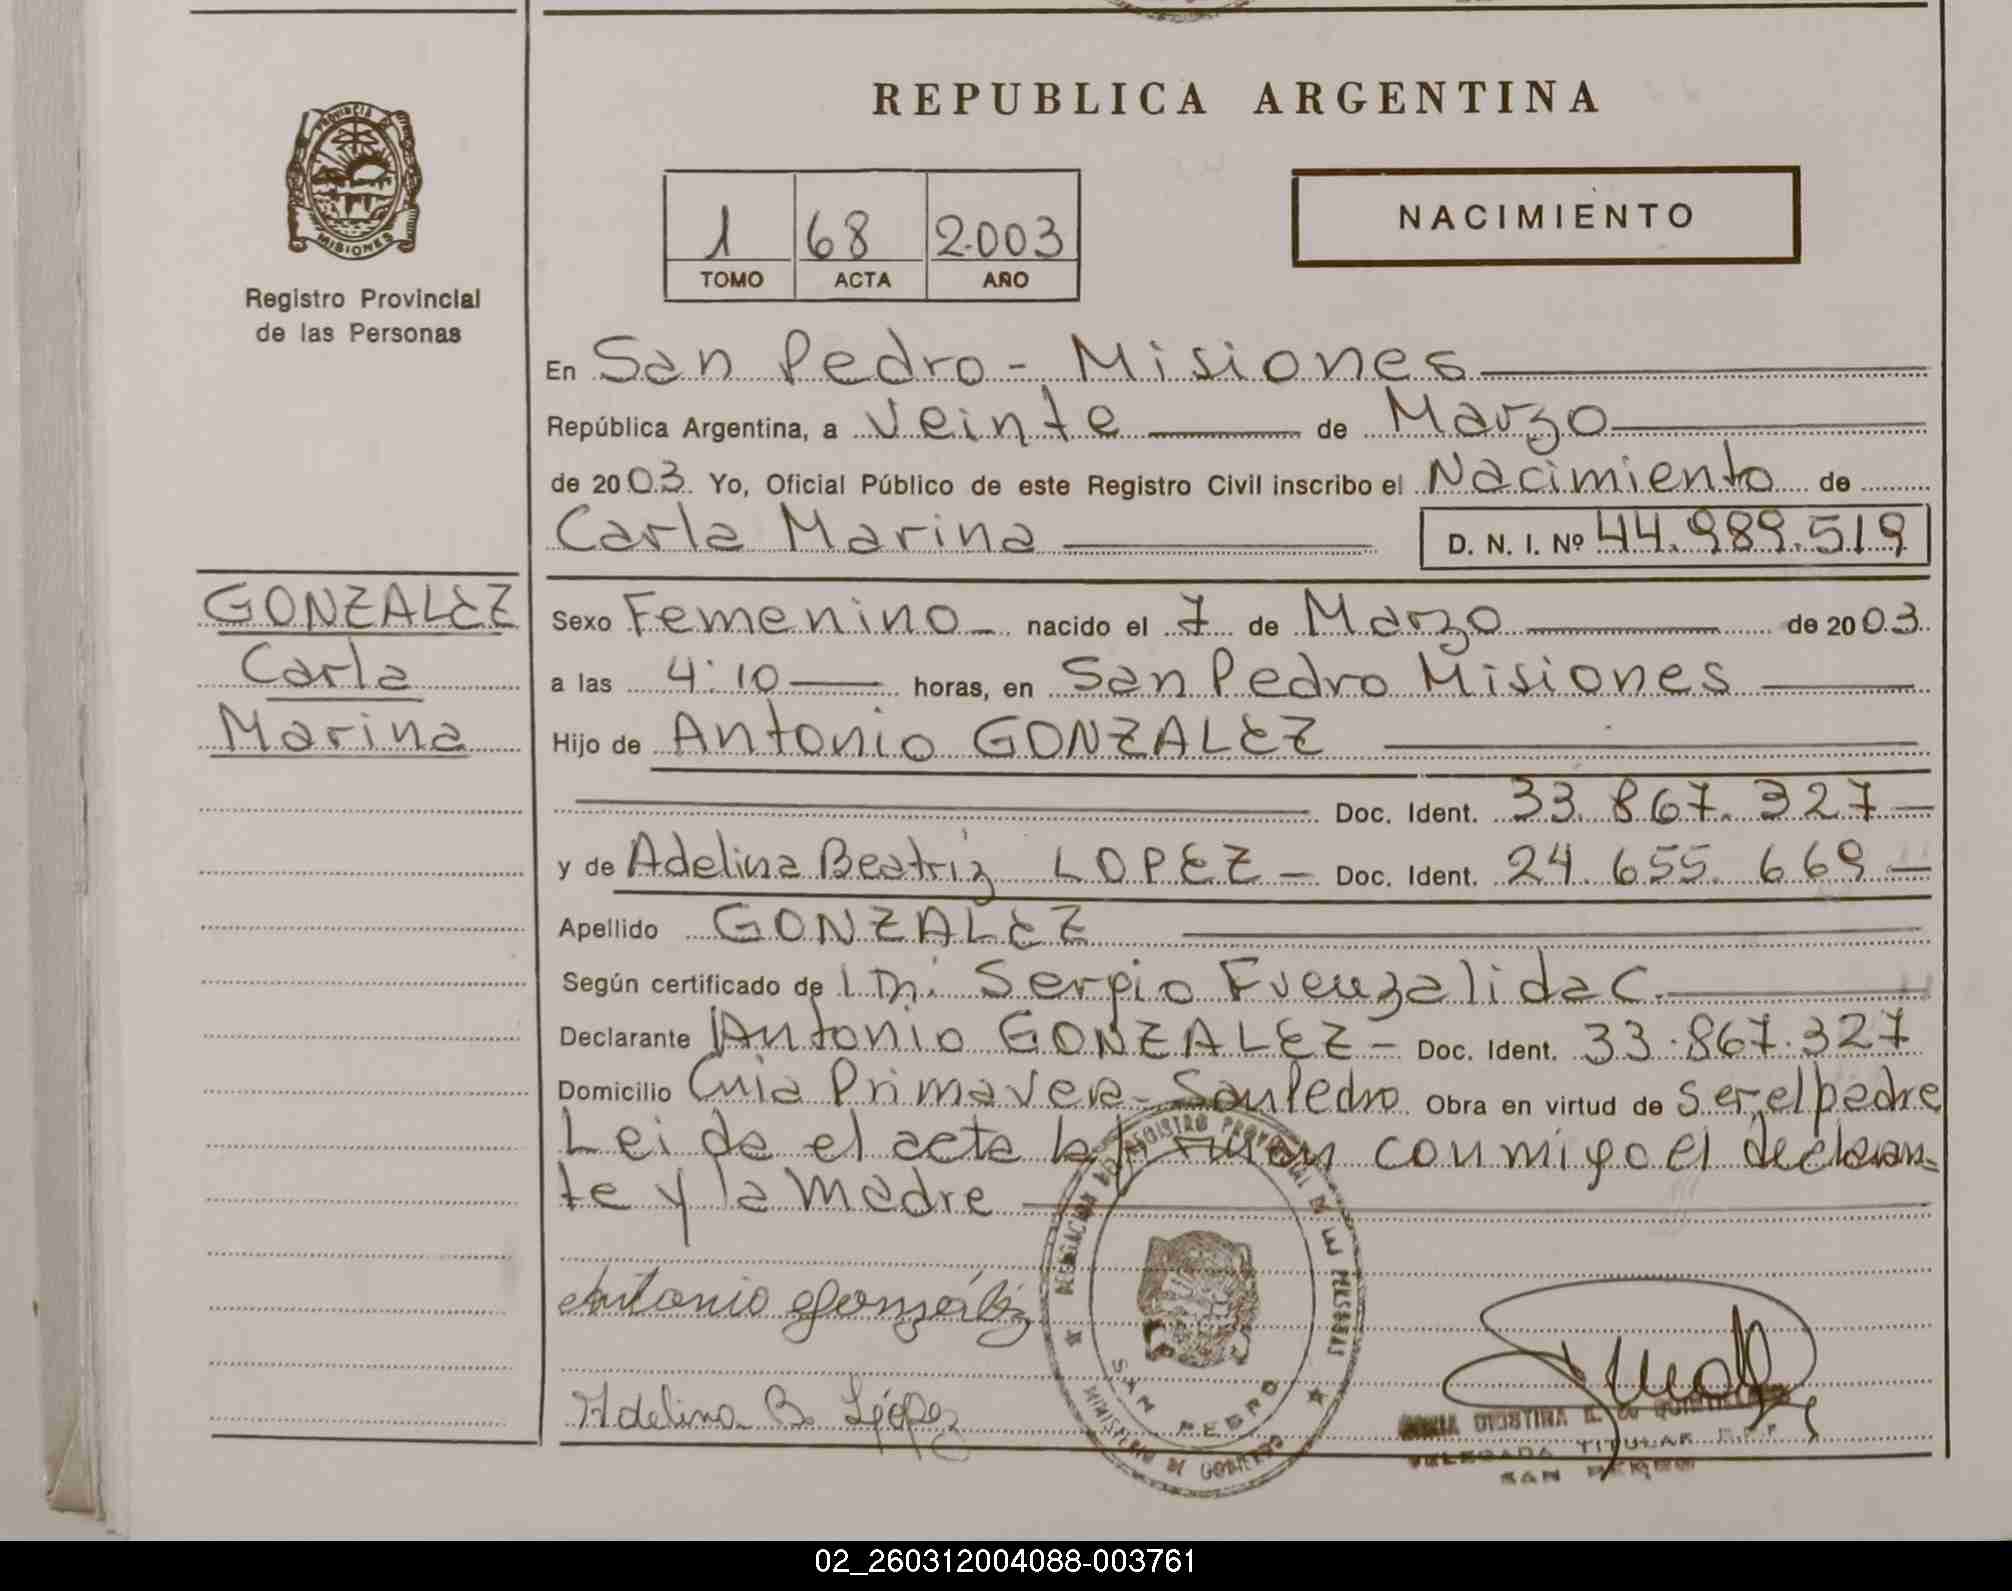 REPUBLICA ARGENTINA
PROVINCIA DE
MISIONES
Registro Provincial
de las Personas
1 68 2.003
TOMO ACTA AÑO
NACIMIENTO
En San Pedro - Misiones
República Argentina, a Veinte de Marzo
de 2003. Yo, Oficial Público de este Registro Civil inscribo el Nacimiento de
Carla Marina D. N. I. Nº 44.989.519
GONZALEZ
Carla
Marina
Sexo Femenino nacido el 7 de Marzo de 2003.
a las 4:10 horas, en San Pedro Misiones
Hijo de Antonio GONZALEZ
Doc. Ident. 33.867.327
y de Adelina Beatriz LOPEZ - Doc. Ident. 24.655.669
Apellido GONZALEZ
Según certificado de Sergio Fuenzalida C.
Declarante Antonio GONZALEZ - Doc. Ident. 33.867.327
Domicilio Cnia Primavera - San Pedro Obra en virtud de ser el padre
Leida el acta la firman conmigo el declaran=
te y la madre
Antonio González
Adelina B. López
DELEGACION DEL REGISTRO PROVINCIAL DE LAS PERSONAS
SAN PEDRO
MINISTERIO DE GOBIERNO
DELEGADA TITULAR
SAN PEDRO
02_260312004088-003761